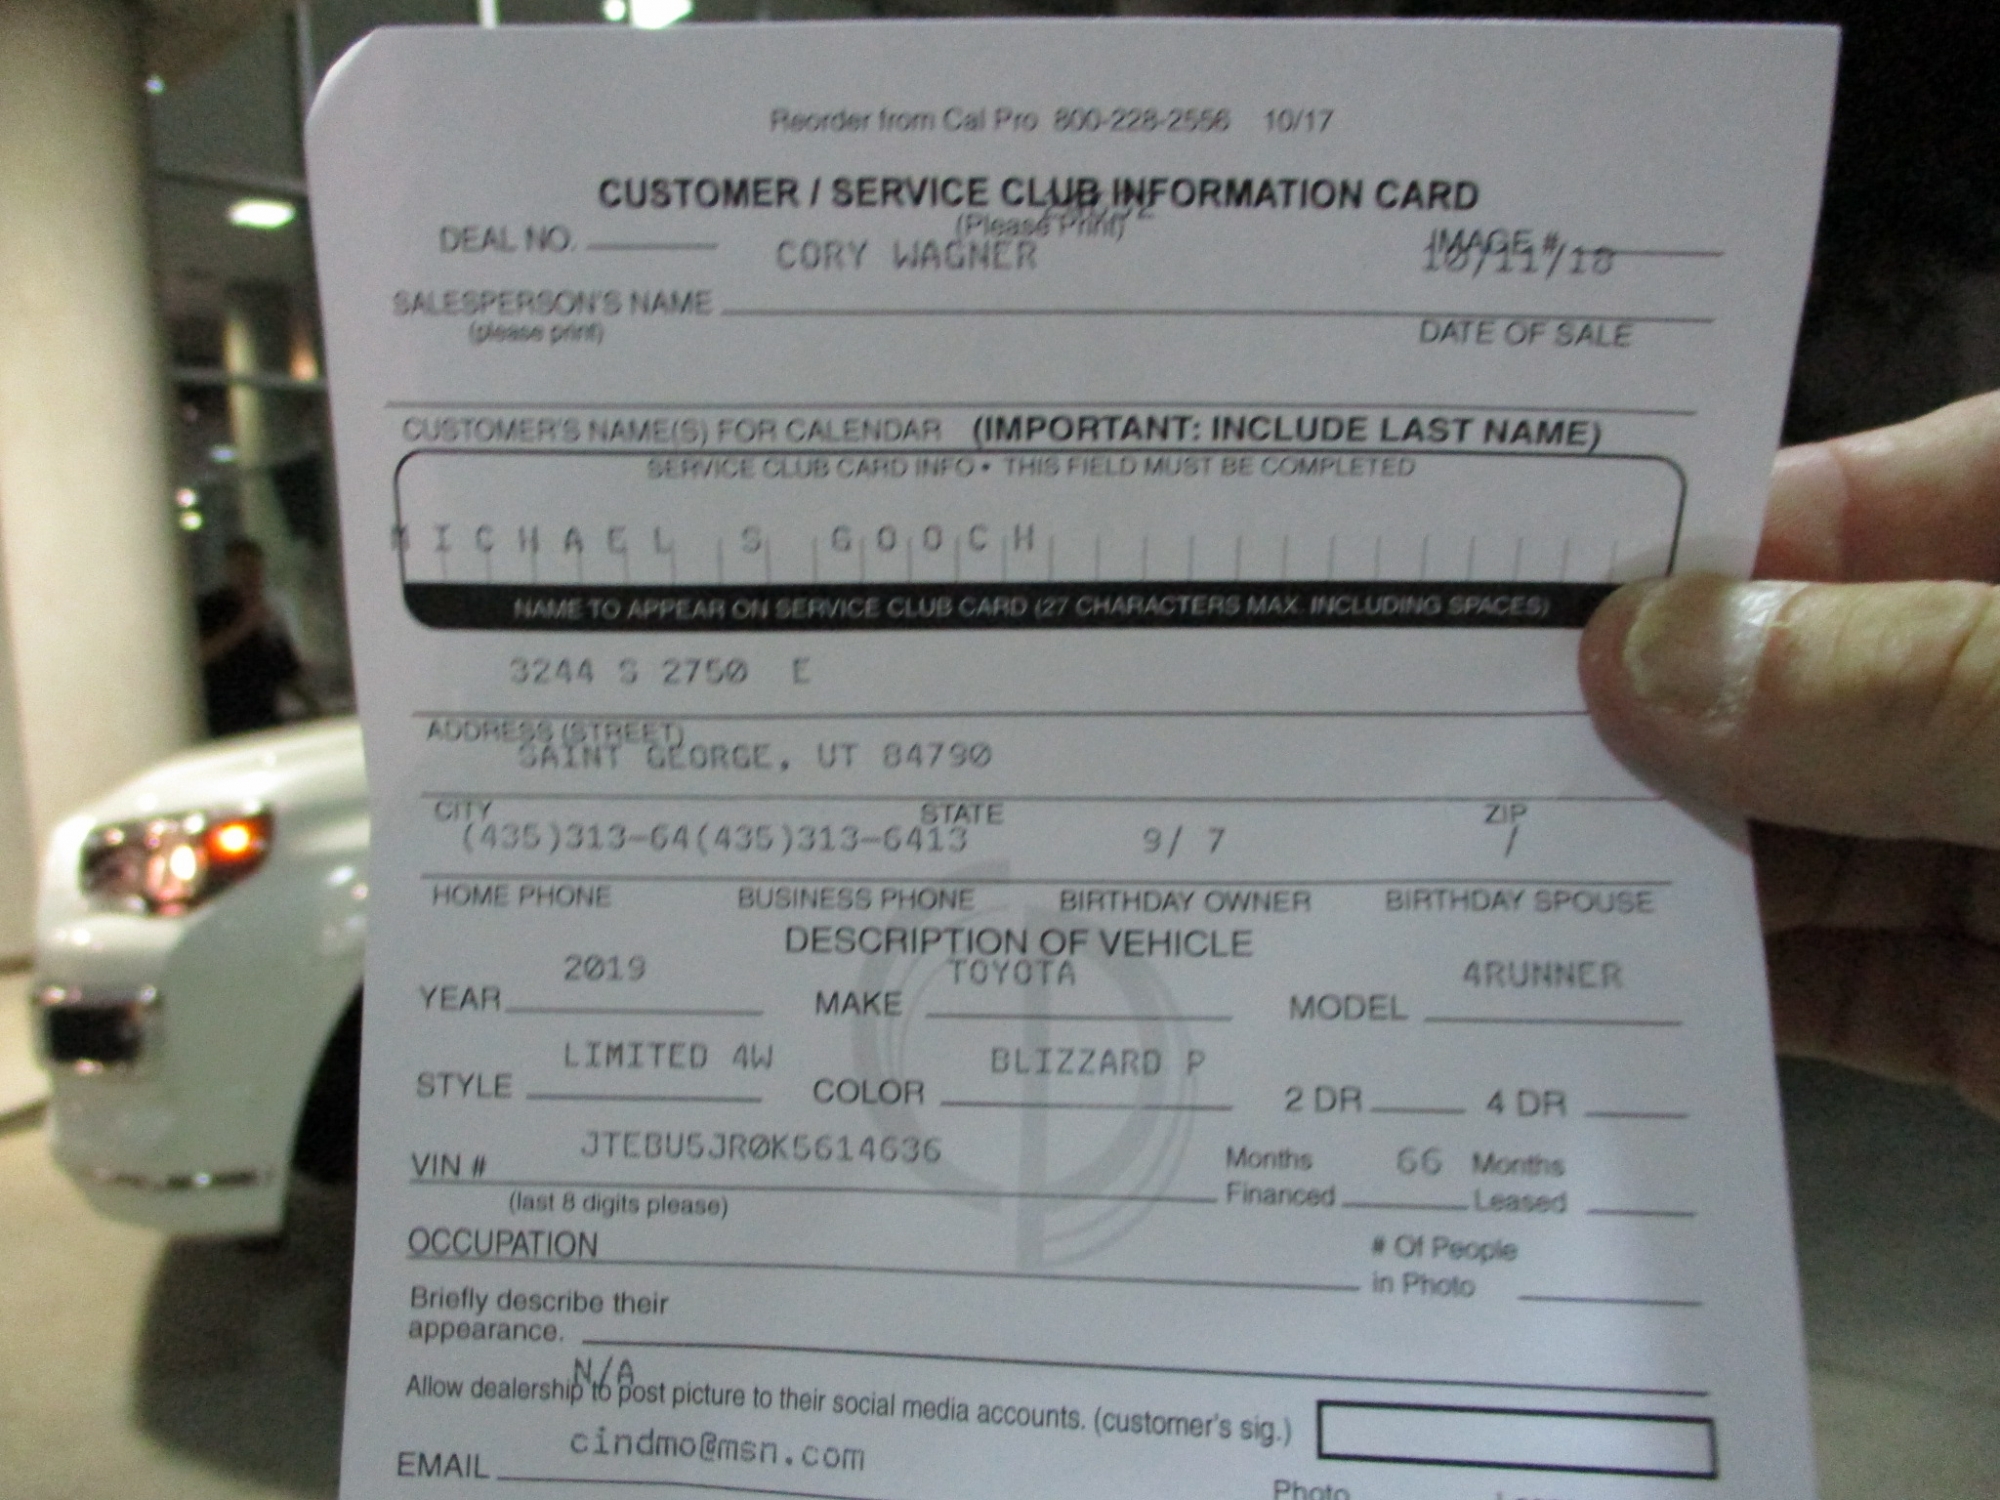 Reorder from Cal Pro 800-228-2556 10/17
CUSTOMER / SERVICE CLUB INFORMATION CARD
(Please Print)
DEAL NO. CORY WAGNER IMAGE #
10/11/18
SALESPERSON'S NAME
(please print) DATE OF SALE
CUSTOMER'S NAME(S) FOR CALENDAR (IMPORTANT: INCLUDE LAST NAME)
SERVICE CLUB CARD INFO • THIS FIELD MUST BE COMPLETED
MICHAEL S GOOCH
NAME TO APPEAR ON SERVICE CLUB CARD (27 CHARACTERS MAX. INCLUDING SPACES)
3244 S 2750 E
ADDRESS (STREET)
SAINT GEORGE, UT 84790
CITY STATE ZIP
(435)313-64(435)313-6413 9/ 7 /
HOME PHONE BUSINESS PHONE BIRTHDAY OWNER BIRTHDAY SPOUSE
DESCRIPTION OF VEHICLE
2019 TOYOTA 4RUNNER
YEAR MAKE MODEL
LIMITED 4W BLIZZARD P
STYLE COLOR 2 DR 4 DR
JTEBU5JR0K5614636 Months 66 Months
VIN # Financed Leased
(last 8 digits please)
OCCUPATION # Of People
in Photo
Briefly describe their
appearance.
N/A
Allow dealership to post picture to their social media accounts. (customer's sig.)
cindmo@msn.com
EMAIL
Photo